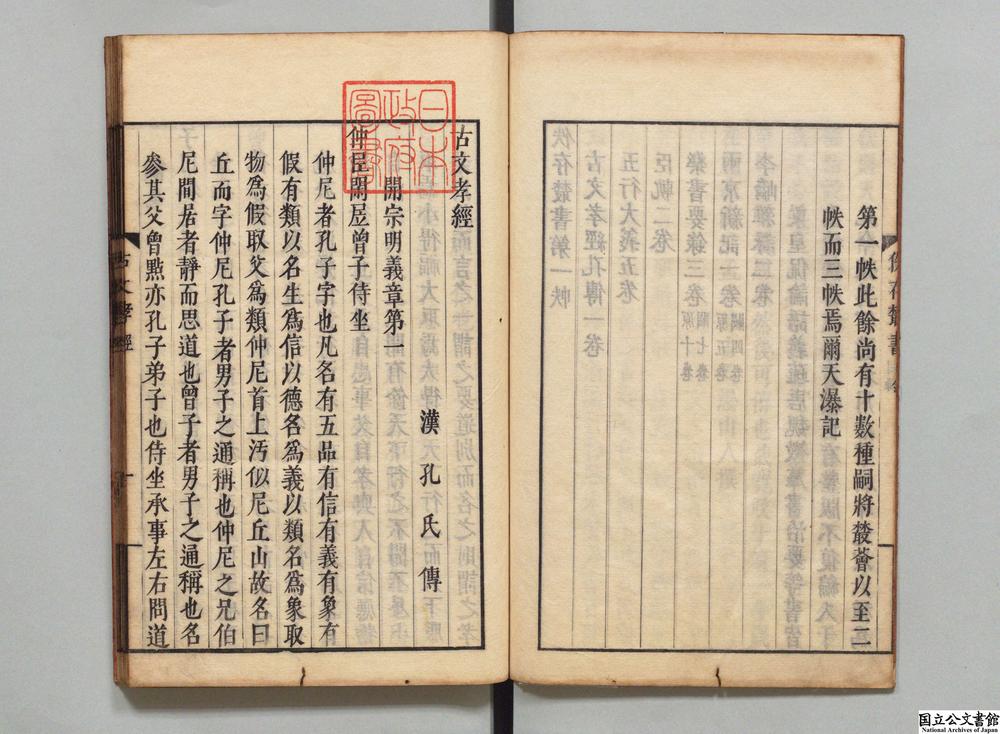 第一帙此餘尚有十數種嗣將叢薈以至二
帙而三帙焉爾天瀑記
古文孝經
開宗明義章第一
漢孔氏傳
仲尼閒居曾子侍坐
仲尼者孔子字也凡名有五品有信有義有象有
假有類以名生爲信以德名爲義以類名爲象取
物爲假取父爲類仲尼首上汚似尼丘山故名曰
丘而字仲尼孔子者男子之通稱也仲尼之兄伯
尼閒居者靜而思道也曾子者男子之通稱也名
參其父曾點亦孔子弟子也侍坐承事左右問道
古文孝經
一
日本
政府
圖書
国立公文書館
National Archives of Japan